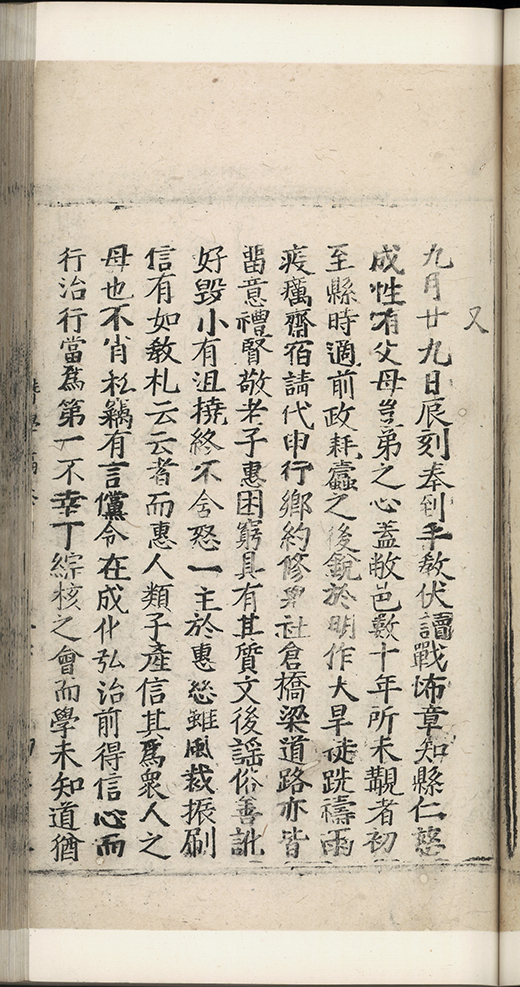 又
九月廿九日辰刻奉到手敎伏讀戰怖章知縣仁慈
成性有父母豈弟之心蓋敝邑數十年所未覯者初
至縣時適前政耗蠹之後銳於明作大旱徒跣禱雨
疾癘齋宿請代申行鄉約修舉社倉橋梁道路亦皆
畱意禮賢敬老子惠困窮具有其質文後謡俗善訿
好毀小有沮撓終不舍怒一主於惠慈雖風裁振刷
信有如敎札云云者而惠人類子產信其爲衆人之
母也不肖私竊有言儻令在成化弘治前得信心而
行治行當爲第一不幸丁綜核之會而學未知道猶